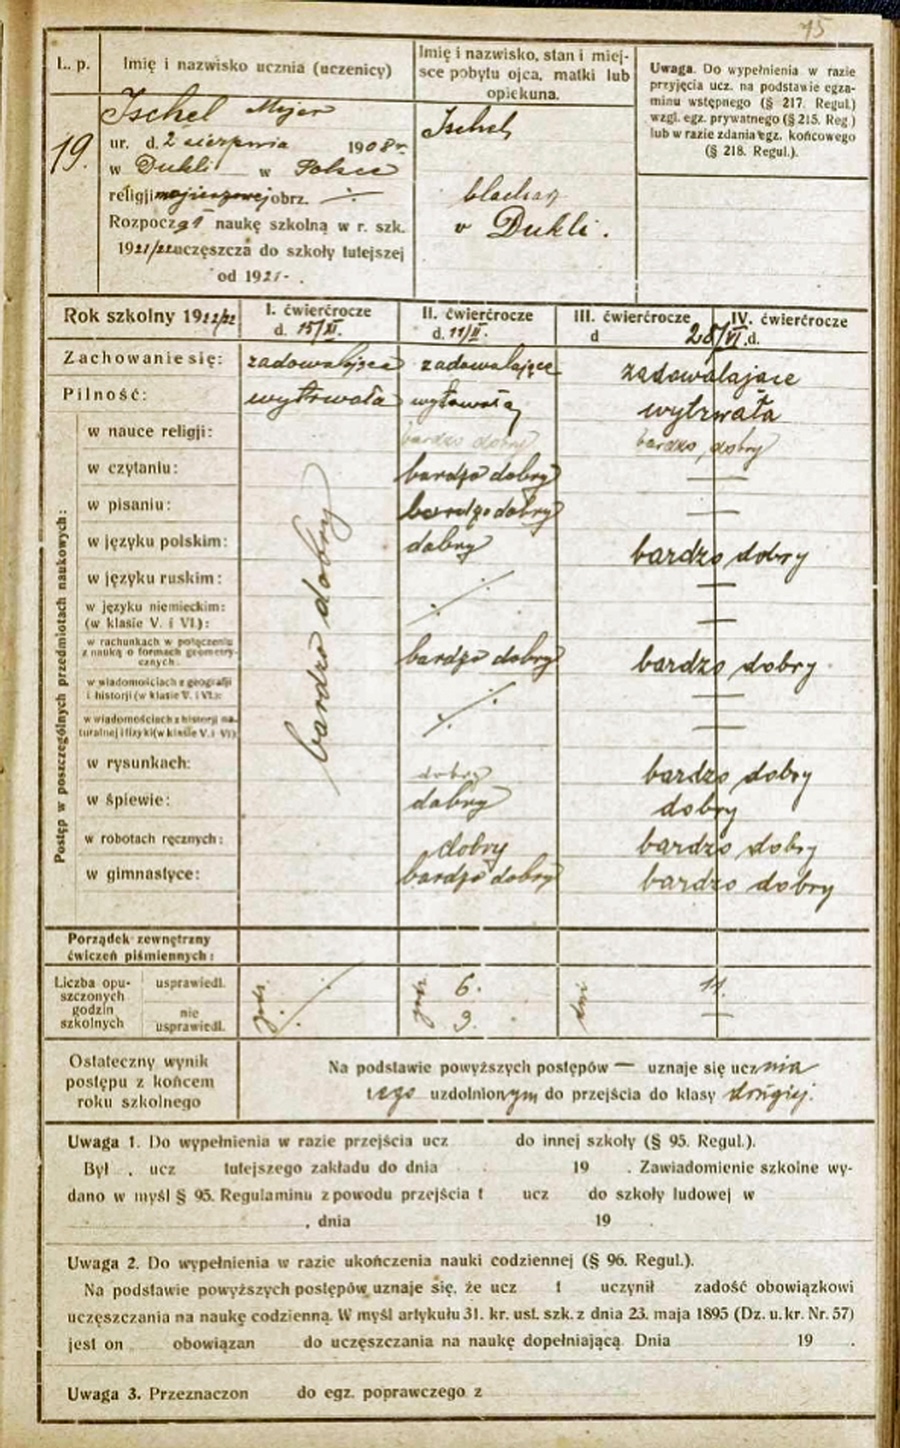 75
L. p.
Imię i nazwisko ucznia (uczenicy)
Imię i nazwisko, stan i miej-
sce pobytu ojca, matki lub
opiekuna.
Uwaga. Do wypełnienia w razie
przyjęcia ucz. na podstawie egza-
minu wstępnego (§ 217. Regul.)
wzgl. egz. prywatnego (§ 215. Reg.)
lub w razie zdania egz. końcowego
(§ 218. Regul.).
19.
Ischel Mejer
ur. d. 2 sierpnia 1908 r.
w Dukli w Polsce
religji mojżeszowej obrz. ·/·
Rozpoczął naukę szkolną w r. szk.
1921/22 uczęszcza do szkoły tutejszej
od 1921.
Ischel
blacharz
w Dukli.
Rok szkolny 1921/22
I. ćwierćrocze
d. 15/XI.
II. ćwierćrocze
d. 11/II.
III. ćwierćrocze
d
IV. ćwierćrocze
28/VI. d.
Zachowanie się: zadowalające zadowalające zadowalające
Pilność: wytrwała wytrwała wytrwała
Postęp w poszczególnych przedmiotach naukowych:
bardzo dobry
w nauce religji: bardzo dobry bardzo dobry
w czytaniu: bardzo dobry —
w pisaniu: bardzo dobry —
w języku polskim: dobry bardzo dobry
w języku ruskim: —
w języku niemieckim:
(w klasie V. i VI.): ·/· —
w rachunkach w połączeniu
z nauką o formach geometry-
cznych. bardzo dobry bardzo dobry
w wiadomościach z geografji
i historji (w klasie V. i VI.): —
w wiadomościach z historji na-
turalnej i fizyki (w klasie V. i VI) ·/· —
w rysunkach: dobry bardzo dobry
w śpiewie: dobry dobry
w robotach ręcznych: dobry bardzo dobry
w gimnastyce: bardzo dobry bardzo dobry
Porządek zewnętrzny
ćwiczeń piśmiennych:
Liczba opu-
szczonych
godzin
szkolnych
usprawiedl. godz. ·/· godz. 6. dni 11.
nie
usprawiedl. 3. —
Ostateczny wynik
postępu z końcem
roku szkolnego
Na podstawie powyższych postępów — uznaje się ucznia
tego uzdolnionym do przejścia do klasy drugiej.
Uwaga 1. Do wypełnienia w razie przejścia ucz do innej szkoły (§ 95. Regul.).
Był . ucz tutejszego zakładu do dnia 19 . Zawiadomienie szkolne wy-
dano w myśl § 95. Regulaminu z powodu przejścia t ucz do szkoły ludowej w
, dnia 19 .
Uwaga 2. Do wypełnienia w razie ukończenia nauki codziennej (§ 96. Regul.).
Na podstawie powyższych postępów uznaje się, że ucz t uczynił zadość obowiązkowi
uczęszczania na naukę codzienną. W myśl artykułu 31. kr. ust. szk. z dnia 23. maja 1895 (Dz. u. kr. Nr. 57)
jest on obowiązan do uczęszczania na naukę dopełniającą. Dnia 19 .
Uwaga 3. Przeznaczon do egz. poprawczego z